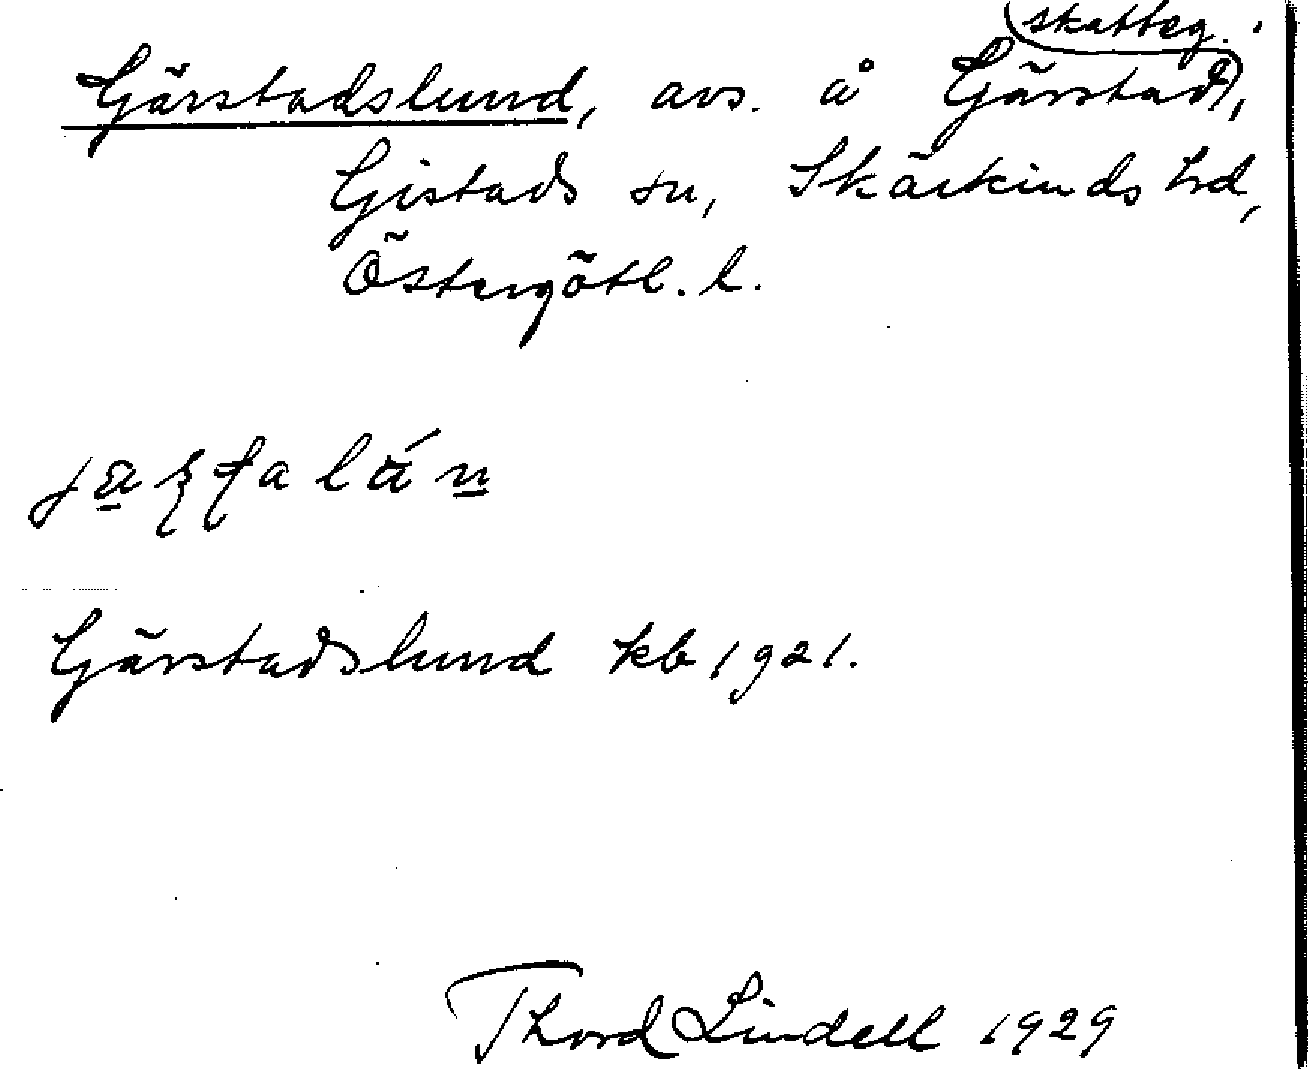 skatteg.
Gärstadslund, avs. å Gärstad,
Gistads sn, Skärkinds hd,
Östergötl. l.
Gärstadslund kb 1921.
Thord Lindell 1929